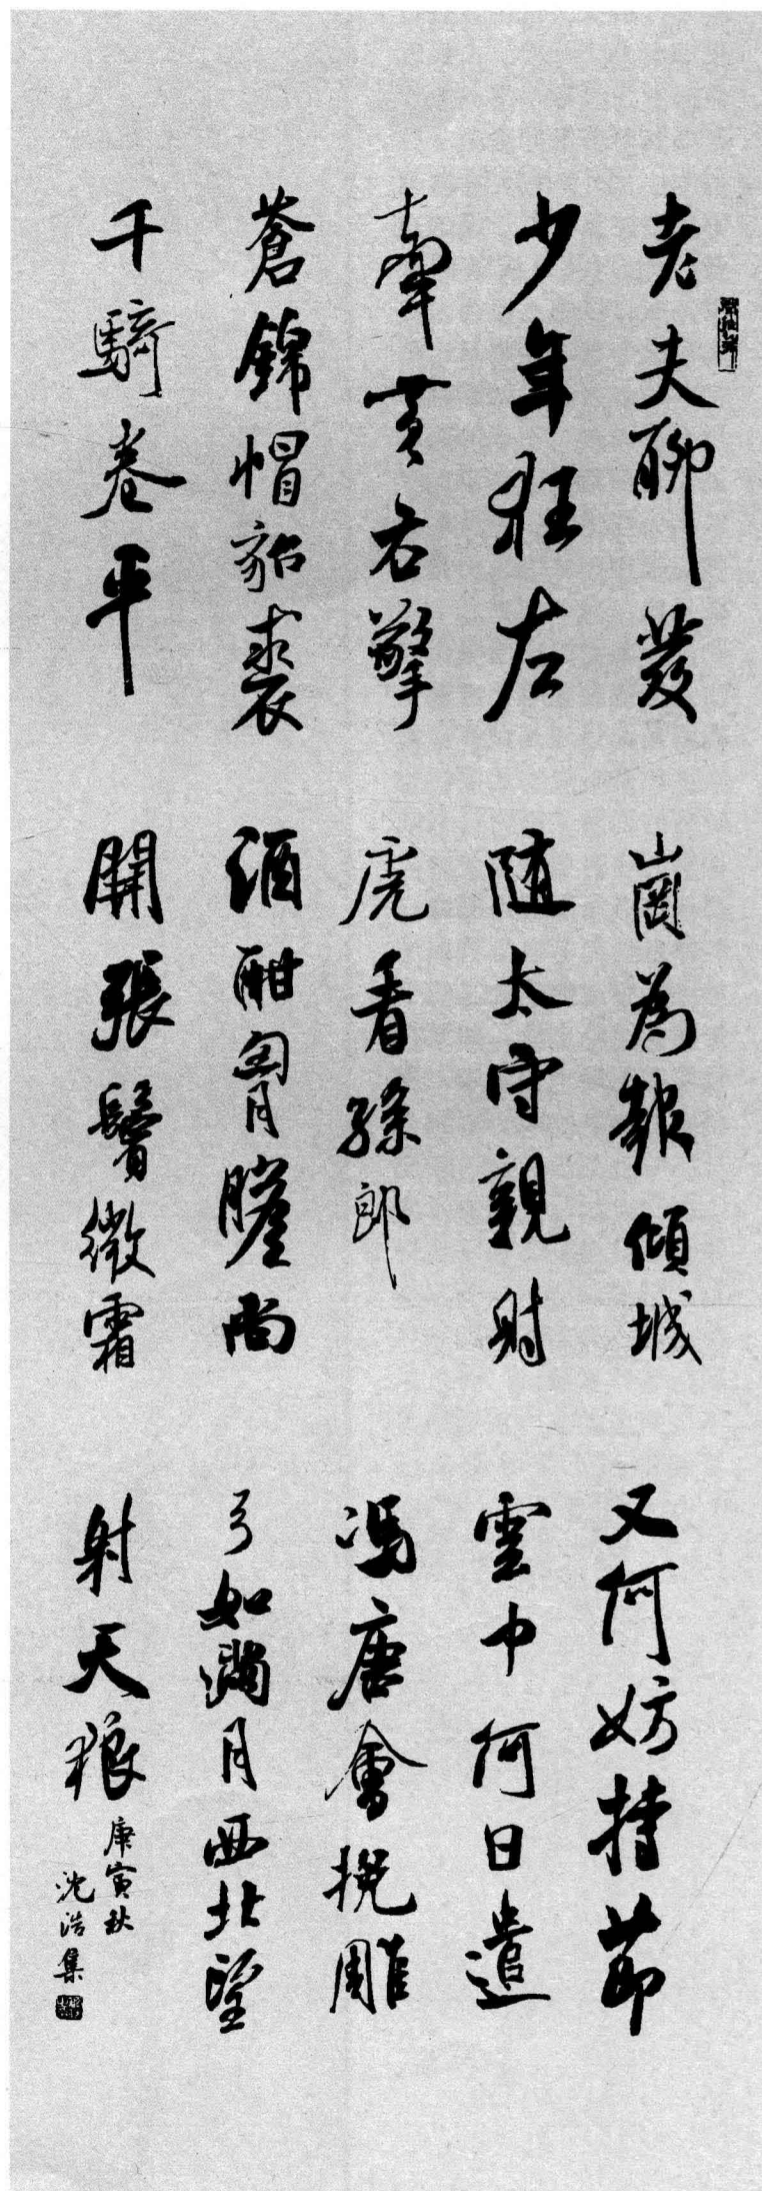 老夫聊發
少年狂左
牽黃右擎
蒼錦帽貂裘
千騎卷平
崗為報傾城
隨太守親射
虎看孫郎
酒酣胸膽尚
開張鬢微霜
又何妨持節
雲中何日遣
馮唐會挽雕
弓如滿月西北望
射天狼
庚寅秋
沈浩集